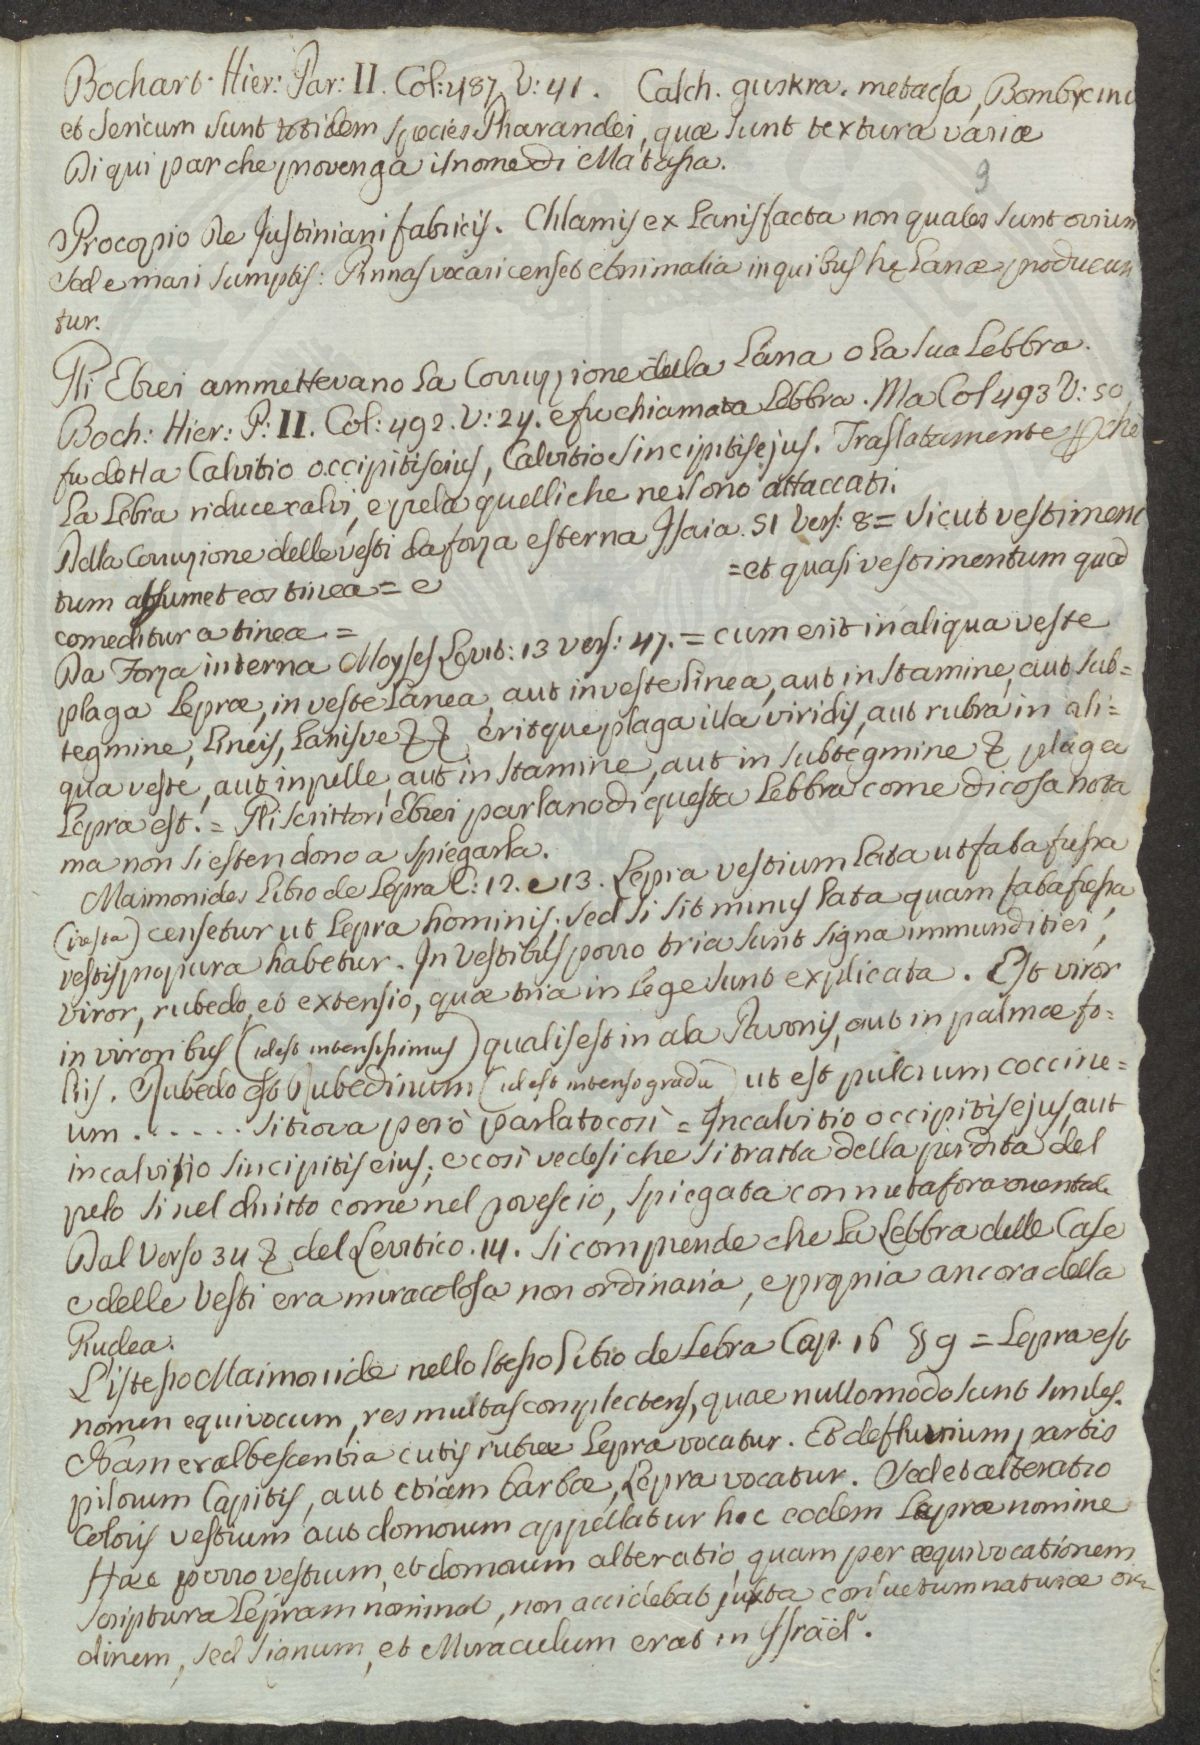 Bochart. Hier: Par: II. Col: 487. V: 41. Calch. guskra. metacsa, Bombycinu
et sericum sunt totidem species Pharandei, quæ sunt textura variæ
Di qui par che provenga il nome di Matassa.
9
Procopio De Justiniani fabricis. Chlamis ex Lanis facta non quales sunt ovium
sed e mari sumptis: Pinnas vocari censet et animalia in quibus hę Lanæ producun
tur.
Gli Ebrei ammettevano la Corruzione della Lana o la sua Lebbra.
Boch: Hier: P: II. Col: 492. V: 24. e fu chiamata Lebbra. Ma Col 493 V: 50
fu detta Calvitio occipitis eius, Calvitio sincipitis ejus. Traslatamente pchè
La Lebra riduce calvi, e pela quelli che ne sono attaccati.
Della Corruzione delle vesti da forza esterna Isaia. 51 Vers: 8 = Sicut vestimen
tum absumet eos tinea = e = et quasi vestimentum quod
comeditur a tinea =
Da Forza interna Moyses Levit: 13 vers: 47. = cum erit in aliqua veste
plaga Lepræ, in veste Lanea, aut in veste linea, aut in stamine, aut sub=
tegmine, Lineis, Lanisve & & eritque plaga illa viridis, aut rubra in ali=
qua veste, aut in pelle, aut in stamine, aut in subtegmine & plaga
Lepra est. = Gli scrittori Ebrei parlano di questa Lebbra come di cosa nota
ma non si estendono a spiegarla.
Maimonides Libro de Lepra C: 12. e 13. Lepra vestium Lata ut faba fressa
censetur ut Lepra hominis; sed si sit minus lata quam faba fressa,
vestis pro pura habetur. In Vestibus porro tria sunt signa immunditiei,
viror, rubedo, et extensio, quæ tria in Lege sunt explicata. Est viror
in viroribus (idest intensissimus) qualis est in ala Pavonis, aut in palmæ fo=
liis. Rubedo est Rubedinum (idest intenso gradu) ut est pulcrum coccine=
um . . . . . . si trova però parlato così = In calvitio occipitis ejus, aut
in calvitio sincipitis eius; e così vedesi che si tratta della perdita del
pelo sì nel diritto come nel rovescio, spiegata con metafora orientale
Dal Verso 34 & del Levitico. 14. si comprende che la Lebbra delle Case
e delle Vesti era miracolosa non ordinaria, e propria ancora della
Giudea.
L'istesso Maimonide nello stesso Libro de Lebra Cap. 16 § 9 = Lepra est
nomen equivocum, res multas complectens, quae nullo modo sunt similes.
Nam exalbescentia cutis rubræ Lepra vocatur. Et defluvium partis
pilorum Capitis, aut etiam barbæ, Lepra vocatur. Sed et alteratio
Coloris vestium aut domorum appellatur hoc eodem Lepræ nomine
Hæc porro vestium, et domorum alteratio, quam per æquivocationem
Scriptura Lepram nominat, non accidebat juxta consuetum naturæ or=
dinem, sed signum, et Miraculum erat in Israël.